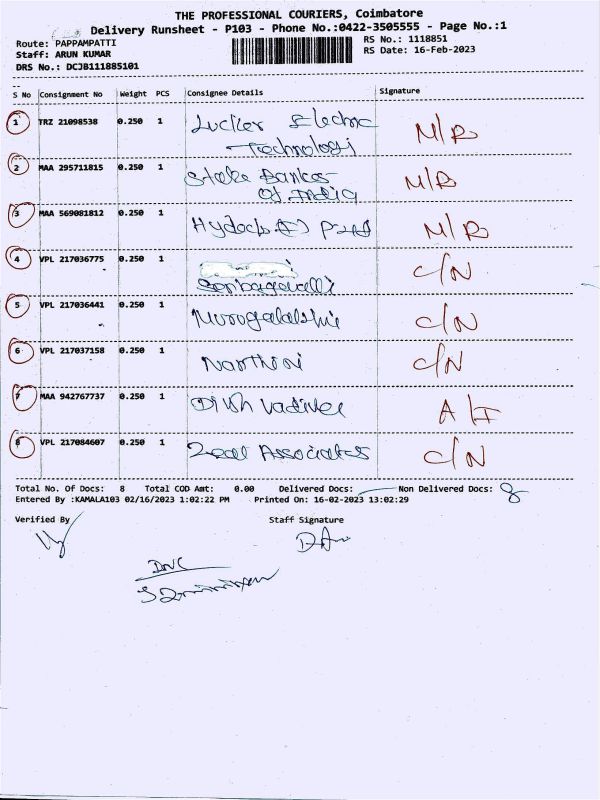 THE PROFESSIONAL COURIERS, Coimbatore
Delivery Runsheet - P103 - Phone No.:0422-3505555 - Page No.:1
Route: PAPPAMPATTI RS No.: 1118851
Staff: ARUN KUMAR RS Date: 16-Feb-2023
DRS No.: DCJB111885101
S No Consignment No Weight PCS Consignee Details Signature
1 TRZ 21098538 0.250 1 Electric M/R
Technologi
2 MAA 295711815 0.250 1 State Bankes M/R
Of India
3 MAA 569081812 0.250 1 M/R
4 VPL 217036775 0.250 1 C/N
5 VPL 217036441 0.250 1 C/N
6 VPL 217037158 0.250 1 C/N
7 MAA 942767737 0.250 1 A/I
8 VPL 217084607 0.250 1 Zeal Associates C/N
Total No. Of Docs: 8 Total COD Amt: 0.00 Delivered Docs: Non Delivered Docs: 8
Entered By :KAMALA103 02/16/2023 1:02:22 PM Printed On: 16-02-2023 13:02:29
Verified By Staff Signature